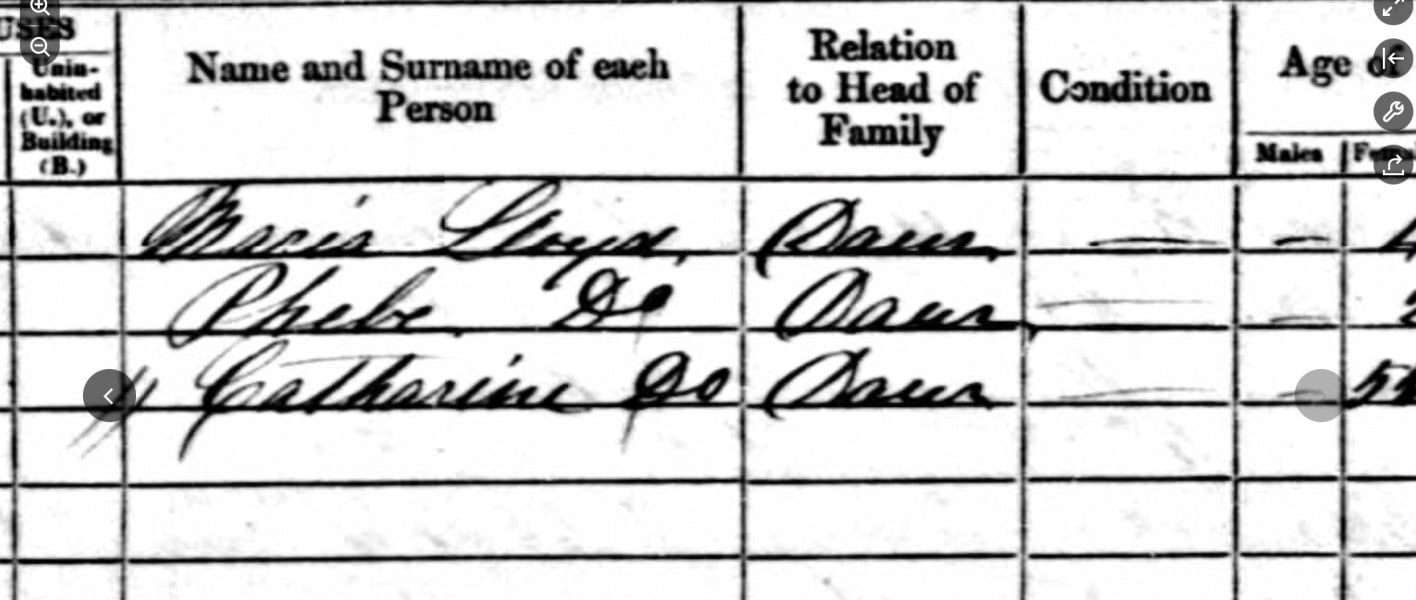 USES
Unin-
habited
(U.), or
Building
(B.)
Name and Surname of each
Person
Relation
to Head of
Family
Condition
Age of
Males
Maria Lloyd, Daur.
Phebe. Do Daur,
Catharine Do Daur